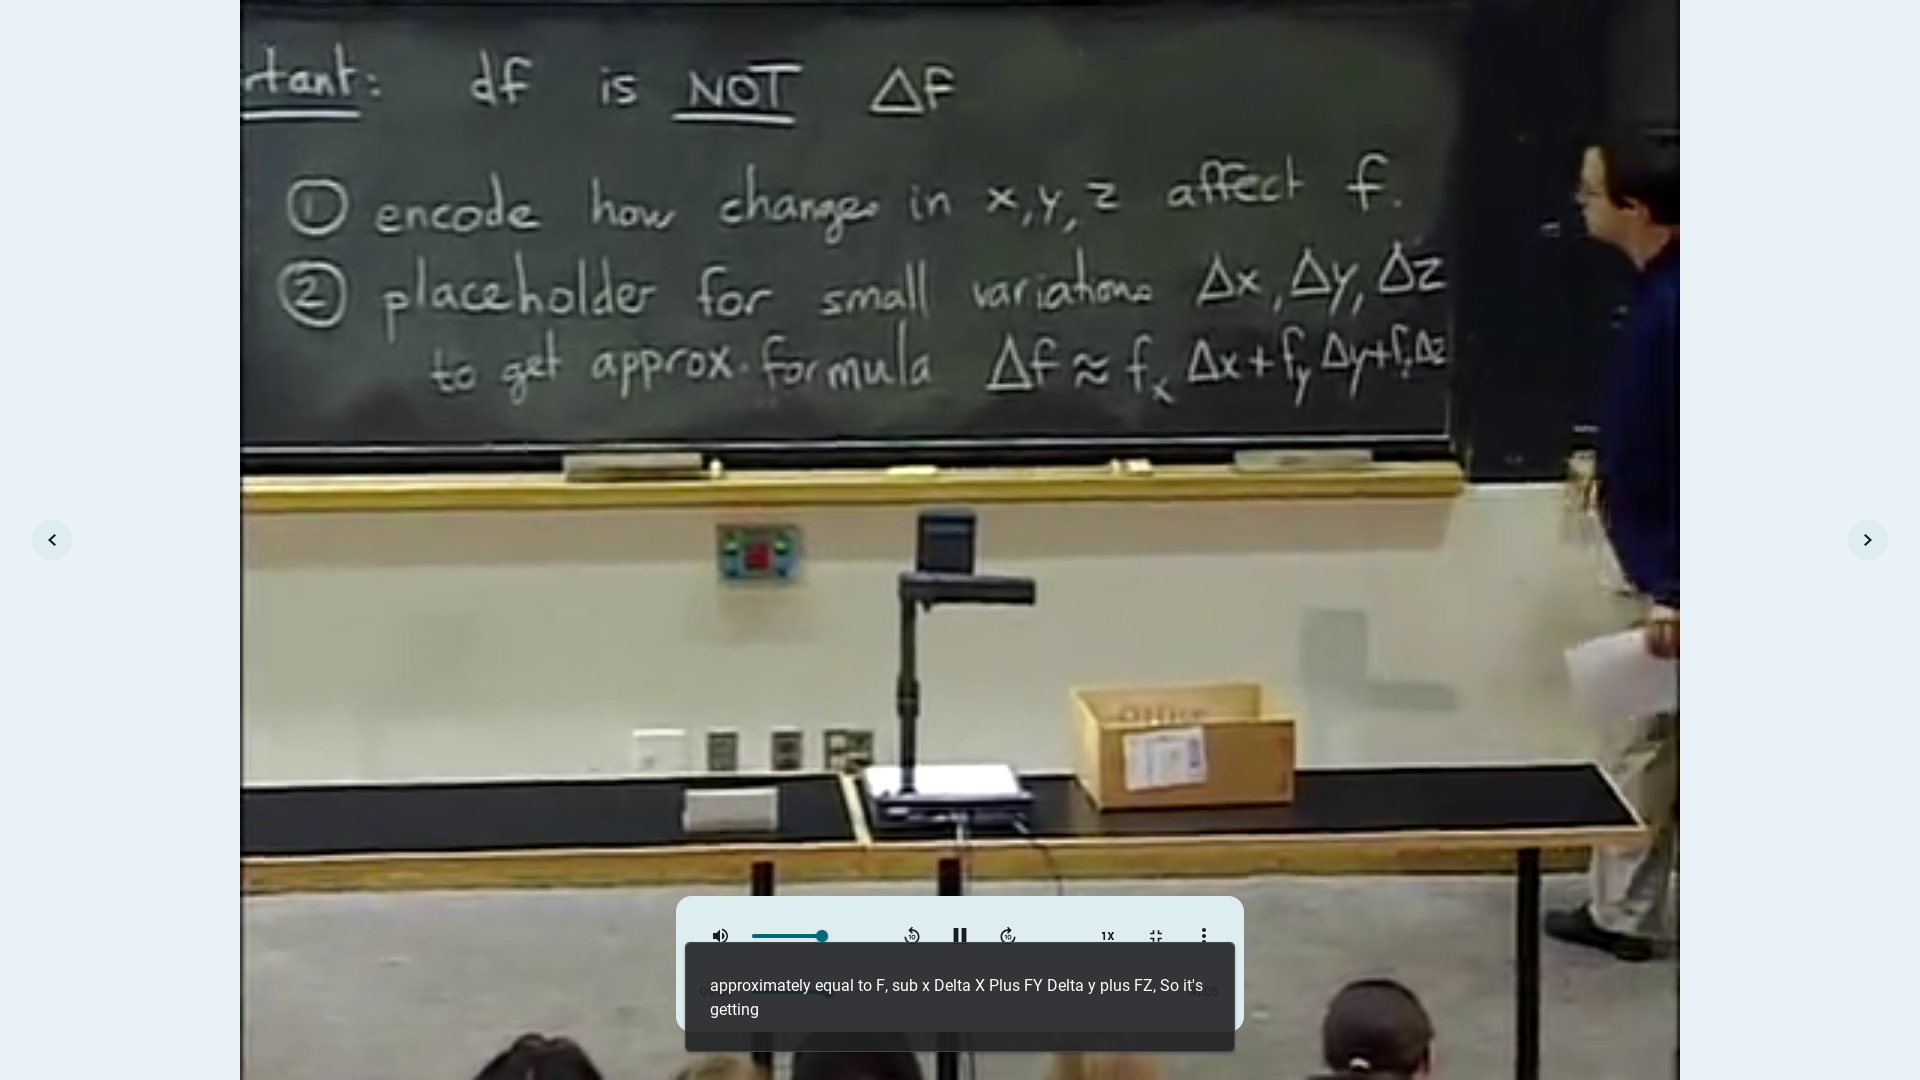 rtant: df is NOT Δf
① encode how changes in x, y, z affect f.
② placeholder for small variations Δx, Δy, Δz
to get approx. formula Δf ≈ f_x Δx + f_y Δy + f_z Δz
Office
10
10
1X
approximately equal to F, sub x Delta X Plus FY Delta y plus FZ, So it's
getting